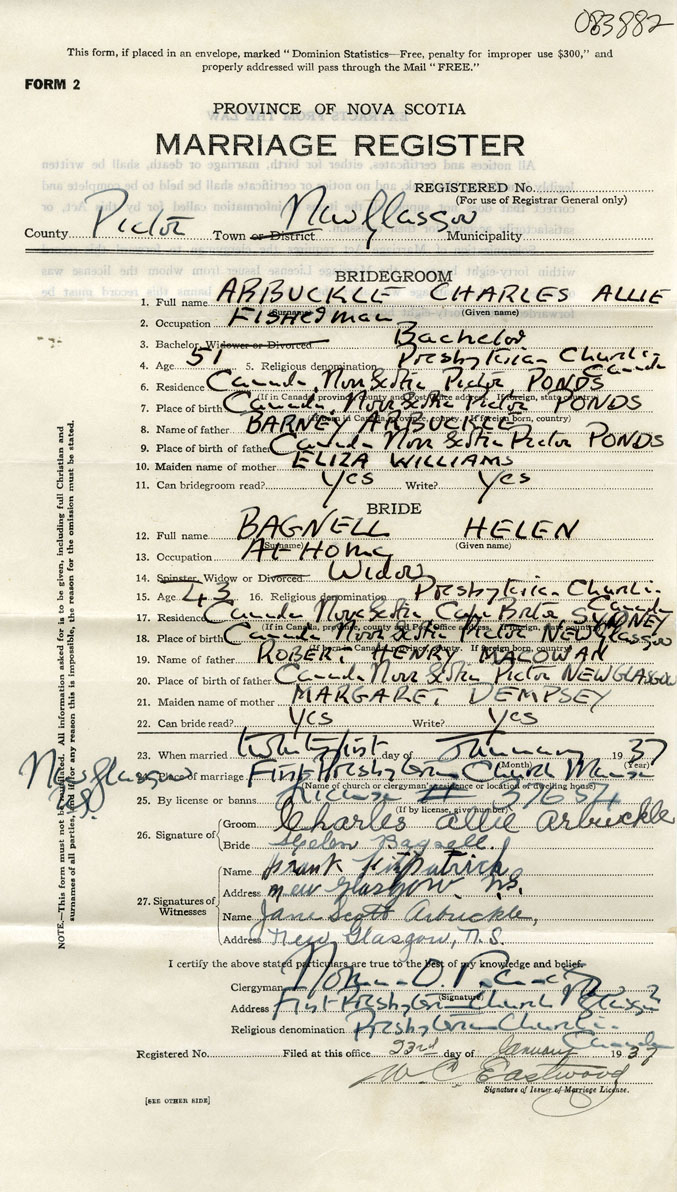 083882
This form, if placed in an envelope, marked "Dominion Statistics—Free, penalty for improper use $300," and
properly addressed will pass through the Mail "FREE."
FORM 2
PROVINCE OF NOVA SCOTIA
MARRIAGE REGISTER
REGISTERED No.
(For use of Registrar General only)
County Pictou Town or District New Glasgow Municipality
BRIDEGROOM
1. Full name ARBUCKLE CHARLES ALLIE
(Surname) (Given name)
2. Occupation Fisherman
3. Bachelor, Widower or Divorced Bachelor
4. Age 51 5. Religious denomination Presbyterian Church in Canada
6. Residence Canada, Nova Scotia Pictou PONDS
(If in Canada, province, county and Post Office address. If foreign, state country)
7. Place of birth Canada, Nova Scotia Pictou PONDS
(If born in Canada, province, county. If foreign born, country)
8. Name of father BARNEY ARBUCKLE
9. Place of birth of father Canada Nova Scotia Pictou PONDS
10. Maiden name of mother ELIZA WILLIAMS
11. Can bridegroom read? Yes Write? Yes
BRIDE
12. Full name BAGNELL HELEN
(Surname) (Given name)
13. Occupation At-Home
14. Spinster, Widow or Divorced Widow
15. Age 43 16. Religious denomination Presbyterian Church in Canada
17. Residence Canada Nova Scotia Cape Breton SYDNEY
(If in Canada, province, county and Post Office address. If foreign, state country)
18. Place of birth Canada Nova Scotia Pictou New Glasgow
(If born in Canada, province, county. If foreign born, country)
19. Name of father ROBERT HENRY MACOWAN
20. Place of birth of father Canada Nova Scotia Pictou NEW GLASGOW
21. Maiden name of mother MARGARET DEMPSEY
22. Can bride read? Yes Write? Yes
23. When married Twenty first day of January 1937
(Month) (Year)
24. Place of marriage First Presbyterian Church Manse
New Glasgow N.S.
(Name of church or clergyman's residence or location of dwelling house)
25. By license or banns License #
(If by license, give number)
26. Signature of Groom Charles Allie Arbuckle
Bride Helen Bagnell.
27. Signatures of Witnesses
Name Frank Fitzpatrick
Address New Glasgow N.S.
Name Jane Scott Arbuckle,
Address New Glasgow, N.S.
I certify the above stated particulars are true to the best of my knowledge and belief.
Clergyman Norman D.
(Signature)
Address First Presbyterian Church
Religious denomination Presbyterian Church in Canada
Registered No. Filed at this office 23rd day of January 1937
W. C. Eastwood
Signature of Issuer of Marriage License.
[SEE OTHER SIDE]
NOTE.—This form must not be mutilated. All information asked for is to be given, including full Christian and
surnames of all parties, and if for any reason this is impossible, the reason for the omission must be stated.